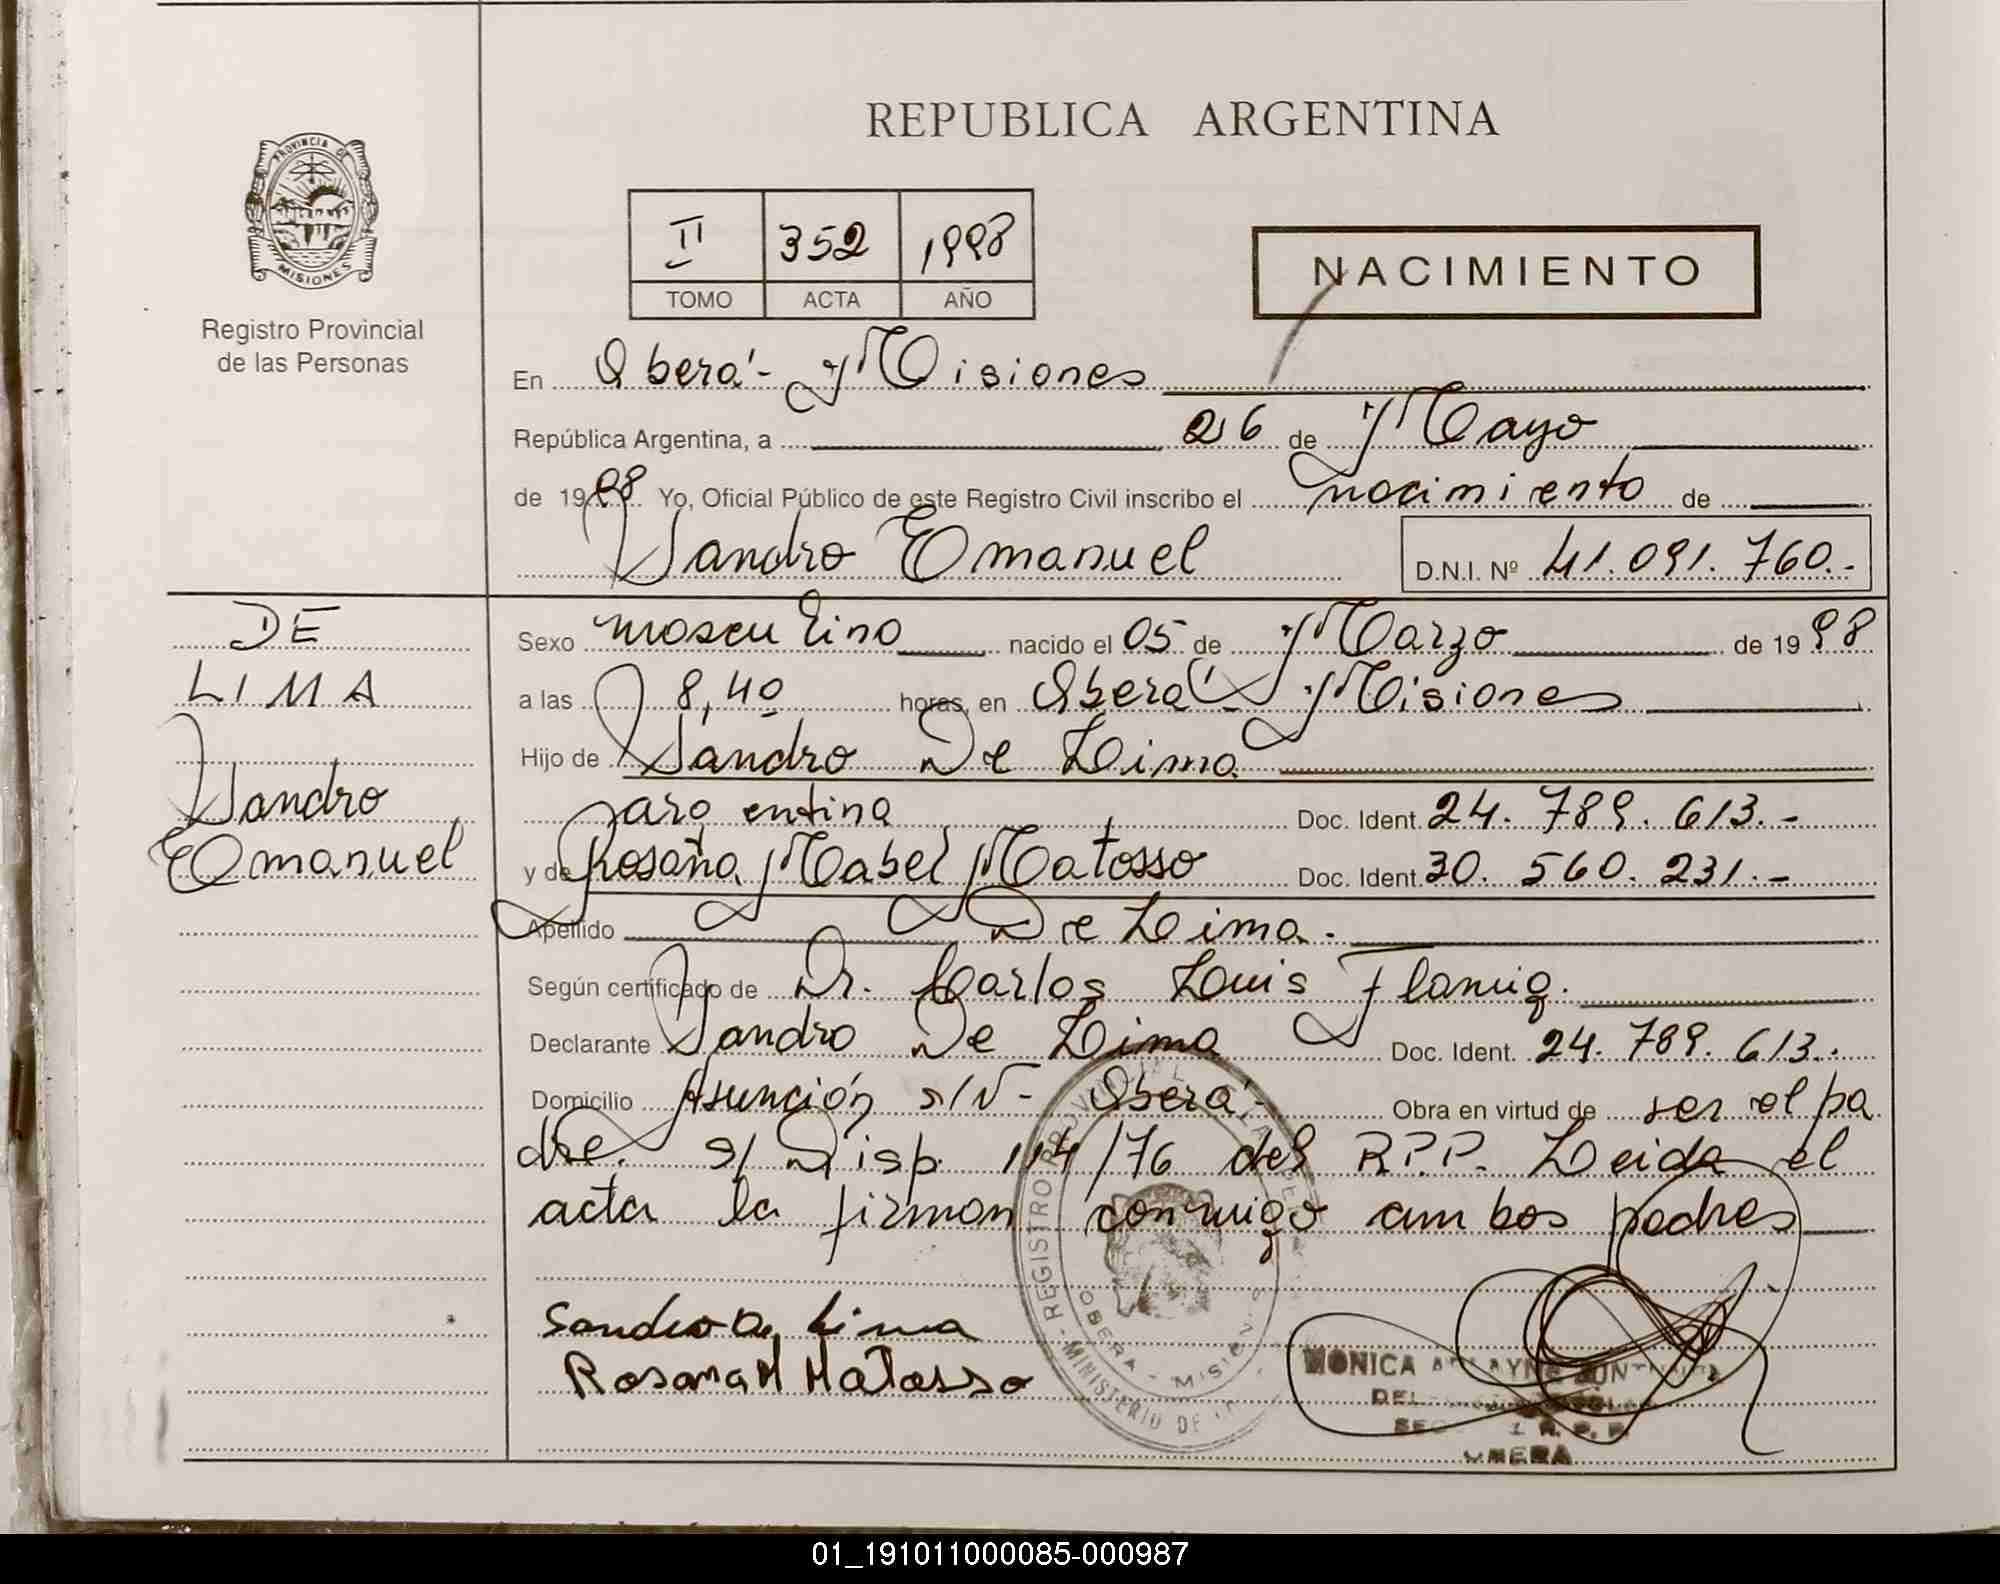 PROVINCIA DE
MISIONES
Registro Provincial
de las Personas
REPUBLICA ARGENTINA
II 352 1998
TOMO ACTA AÑO
NACIMIENTO
En Oberá - Misiones
República Argentina, a 26 de Mayo
de 1998 Yo, Oficial Público de este Registro Civil inscribo el nacimiento de
Sandro Emanuel D.N.I. Nº 41.091.760.-
DE
LIMA
Sandro
Emanuel
Sexo masculino nacido el 05 de Marzo de 1998
a las 8,40 horas, en Oberá - Misiones
Hijo de Sandro De Lima
argentina Doc. Ident. 24.789.613.-
y de Rosana Mabel Matosso Doc. Ident. 30.560.231.-
Apellido De Lima.
Según certificado de Dr. Carlos Luis Flamig.
Declarante Sandro De Lima Doc. Ident. 24.789.613.
Domicilio Asunción s/N - Oberá - Obra en virtud de ser el pa
dre. s/ Disp. 114/76 del R.P.P. Leida el
acta la firman conmigo ambos padres
Sandro De Lima
Rosana M Matosso
REGISTRO PROVINCIAL DE LAS
MINISTERIO DE
OBERA - MISIONES
MONICA
R. P. P.
OBERA
01_191011000085-000987